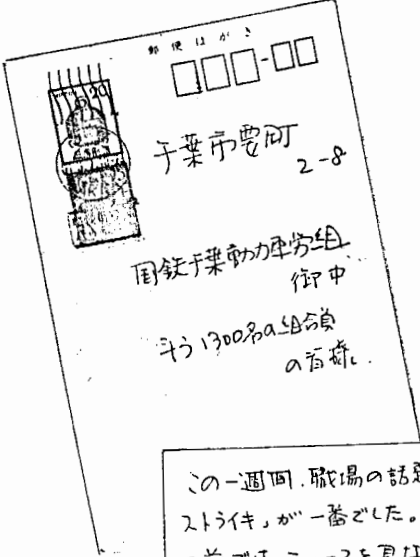 郵便はがき
20
千葉市要町
2-8
国鉄千葉動力車労組
御中
斗う1300名の組合員
の皆様
この一週間、職場の話題
ストライキ」が一番でした。